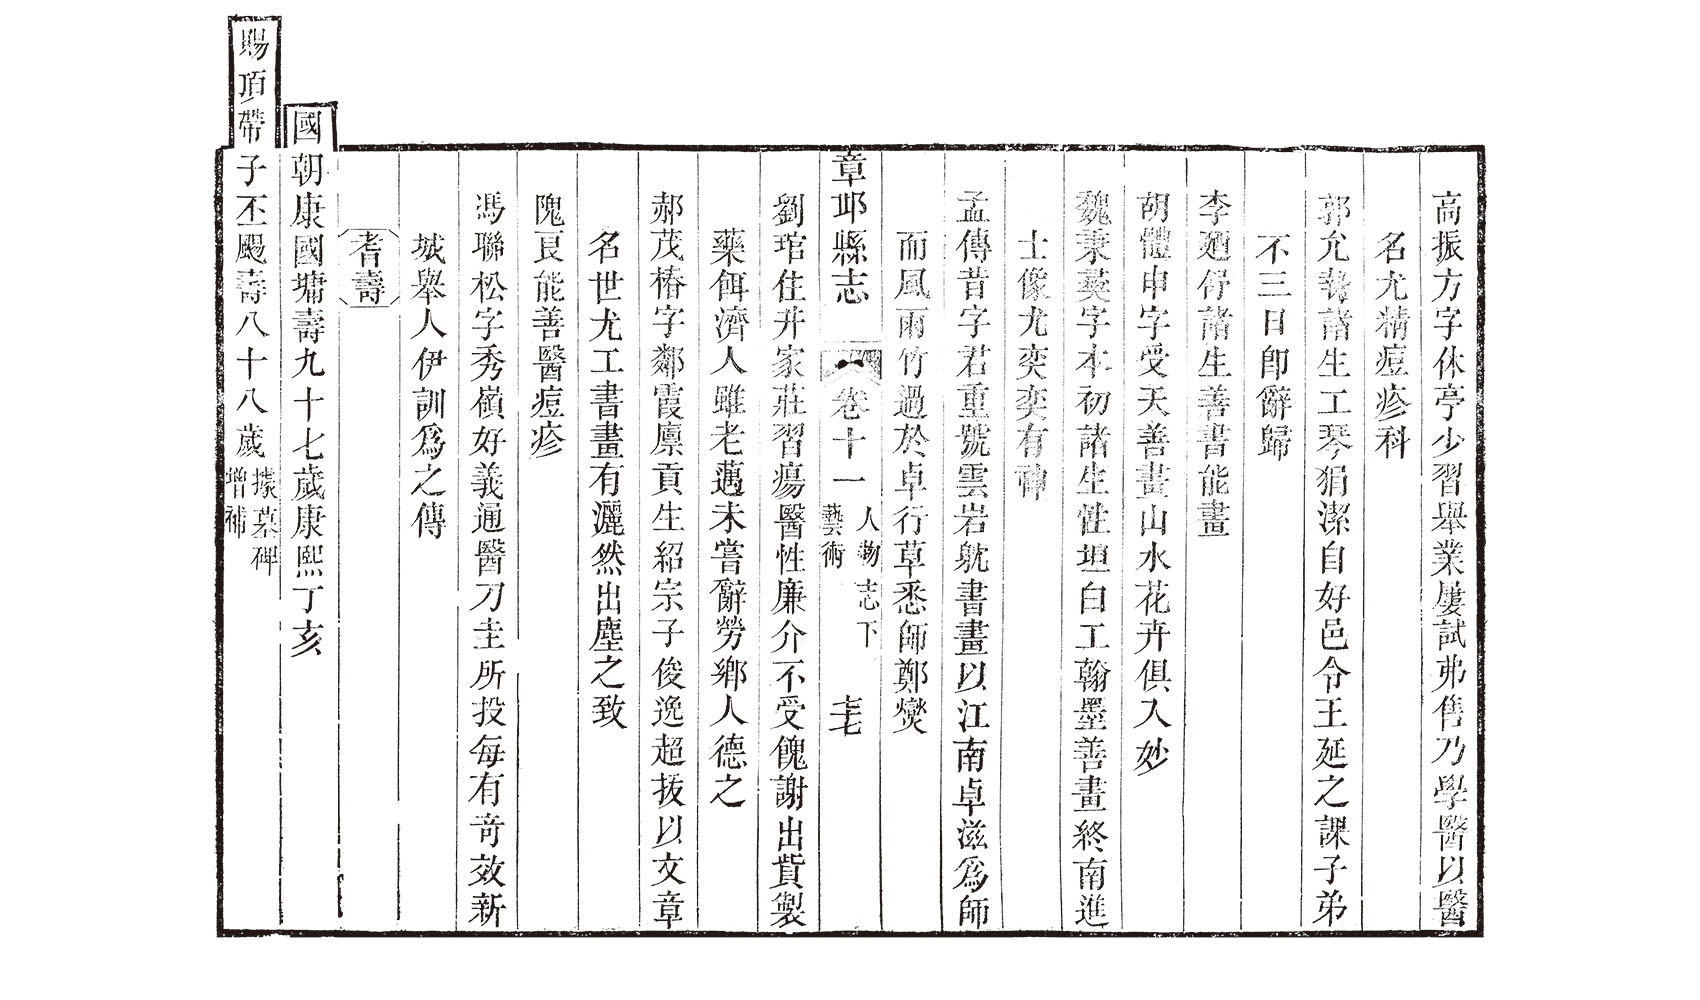 高振方字休亭少習舉業屢試弗售乃學醫以醫
名尤精痘疹科
郭允諸生工琴狷潔自好邑令王延之課子弟
不三日卽辭歸
李廼舒諸生善書能畫
胡體申字受天善畫山水花卉俱入妙
魏秉英字本初諸生性坦白工翰墨善畫終南進
士像尤奕奕有神
孟傳昔字君重號雲岩躭書畫以江南卓滋爲師
而風雨竹過於卓行草悉師鄭燮
章邱縣志 卷十一 人物志下 藝術
劉琯住井家莊習瘍醫性廉介不受餽謝出貲製
藥餌濟人雖老邁未嘗辭勞鄉人德之
郝茂椿字鄰霞廩貢生紹宗子俊逸超拔以文章
名世尤工書畫有灑然出塵之致
隗良能善醫痘疹
馮聯松字秀嶺好義通醫刀圭所投每有奇效新
城舉人伊訓爲之傳
耆壽
國朝康國墉壽九十七歲康熙丁亥
賜頂帶子丕颺壽八十八歲 據墓碑增補